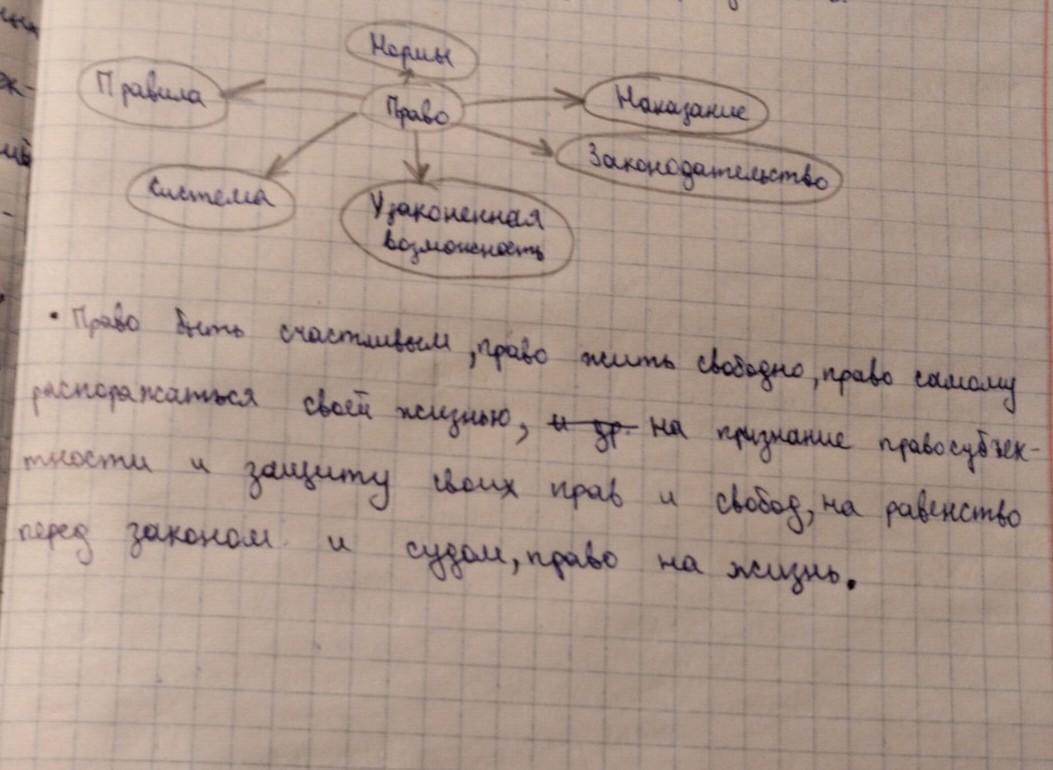 Нормы
Правила
Право
Наказание
Законодательство
Система
Узаконенная
возможность
• Право быть счастливым, право жить свободно, право самому
распоражаться своей жизнью, и др. на признание правосубъек-
тности и защиту своих прав и свобод, на равенство
перед законом и судом, право на жизнь.